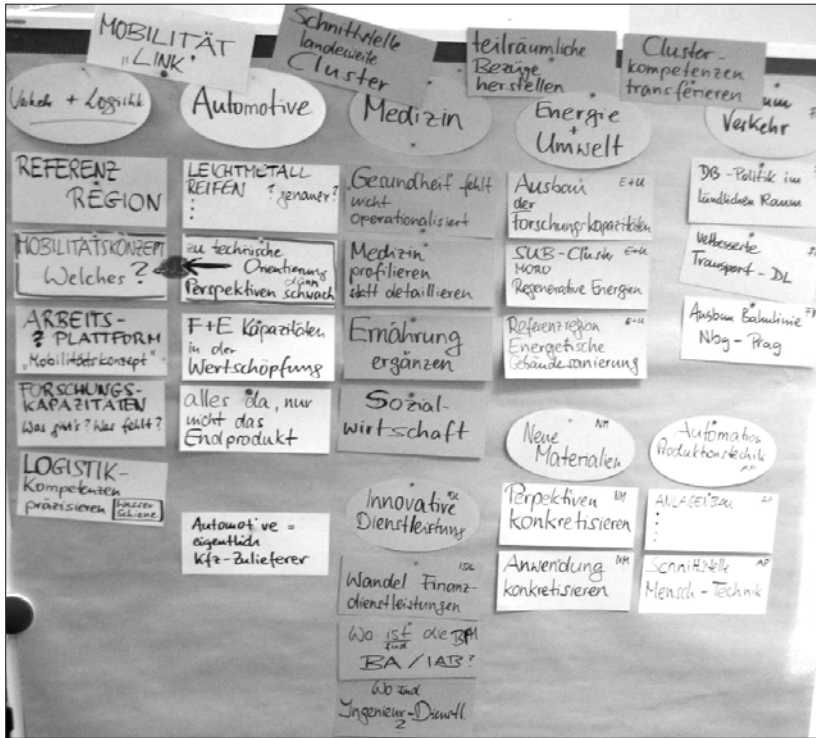 MOBILITÄT
"LINK"
Schnittstelle
landesweite
Cluster
teilräumliche
Bezüge
herstellen
Cluster-
kompetenzen
transferieren
Verkehr + Logistik
REFERENZ
REGION
MOBILITÄTSKONZEPT
Welches ?
ARBEITS-
? PLATTFORM
"Mobilitätskonzept"
FORSCHUNGS-
KAPAZITÄTEN
Was gibt's? Was fehlt?
LOGISTIK-
Kompetenzen
präzisieren Wasser
Schiene
Automotive
LEICHTMETALL
REIFEN ? genauer?
:
zu technische
Orientierung
dann
Perspektiven schwach
F+E Kapazitäten
in der
Wertschöpfung
alles da, nur
nicht das
Endprodukt
Automotive =
eigentlich
Kfz-Zulieferer
Medizin
"Gesundheit" fehlt
nicht
operationalisiert
Medizin
profilieren
statt detaillieren
Ernährung
ergänzen
Sozial-
wirtschaft
Innovative IDL
Dienstleistung
Wandel Finanz- IDL
dienstleistungen
Wo ist die
sind
BA / IAB?
Wo sind
Ingenieur-Dienstl.
?
Energie
+
Umwelt
Ausbau E+U
der
Forschungskapazitäten
SUB-Cluster E+U
MORO
Regenerative Energien
Referenzregion E+U
Energetische
Gebäudesanierung
Neue NM
Materialien
Perpektiven NM
konkretisieren
Anwendung NM
konkretisieren
Verkehr
DB-Politik im
ländlichen Raum
Verbesserte
Transport-DL
Ausbau Bahnlinie
Nbg - Prag
Automation
Produktionstechnik
AP
ANLAGENBAU AP
:
Schnittstelle AP
Mensch-Technik